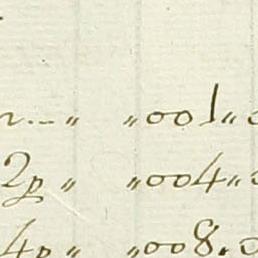 „ „001„
2p „ „004„
4p „ „008.